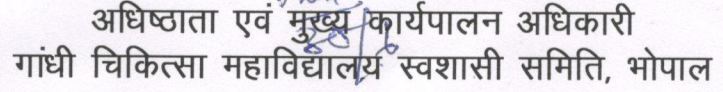 अधिष्ठाता एवं मुख्य कार्यपालन अधिकारी
गांधी चिकित्सा महाविद्यालय स्वशासी समिति, भोपाल